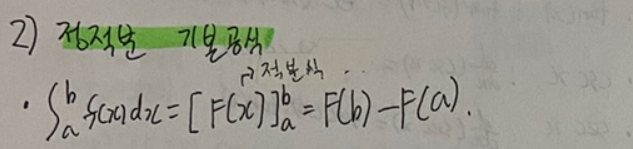 2) 정적분 기본공식
↱적분식..
· ∫ₐᵇ f(x)dx = [F(x)]ₐᵇ = F(b) − F(a).